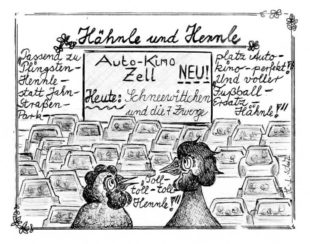 Hähnle und Hennle
Passend zu
Pfingsten-
Hennle -
statt Jahn-
Straßen-
Park-
Auto-Kino
Zell NEU!
Heute: Schneewittchen
und die 7 Zwerge
platz Auto-
kino-perfekt!
Und voller
Fußball-
Ersatz
Hähnle!"
"Toll-
toll-toll
Hennle!"